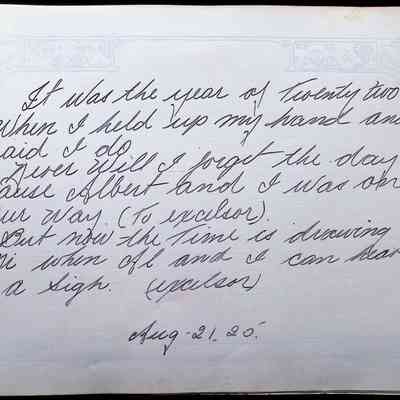 It was the year of Twenty two
When I held up my hand an
aid I do
Never Will I forget the day
ause Albert and I was on
ur Way. (To excelsor).
But now the Time is drawing
Ni when Al and I can hear
a Sigh. (excelsor)
Aug-21, 25.